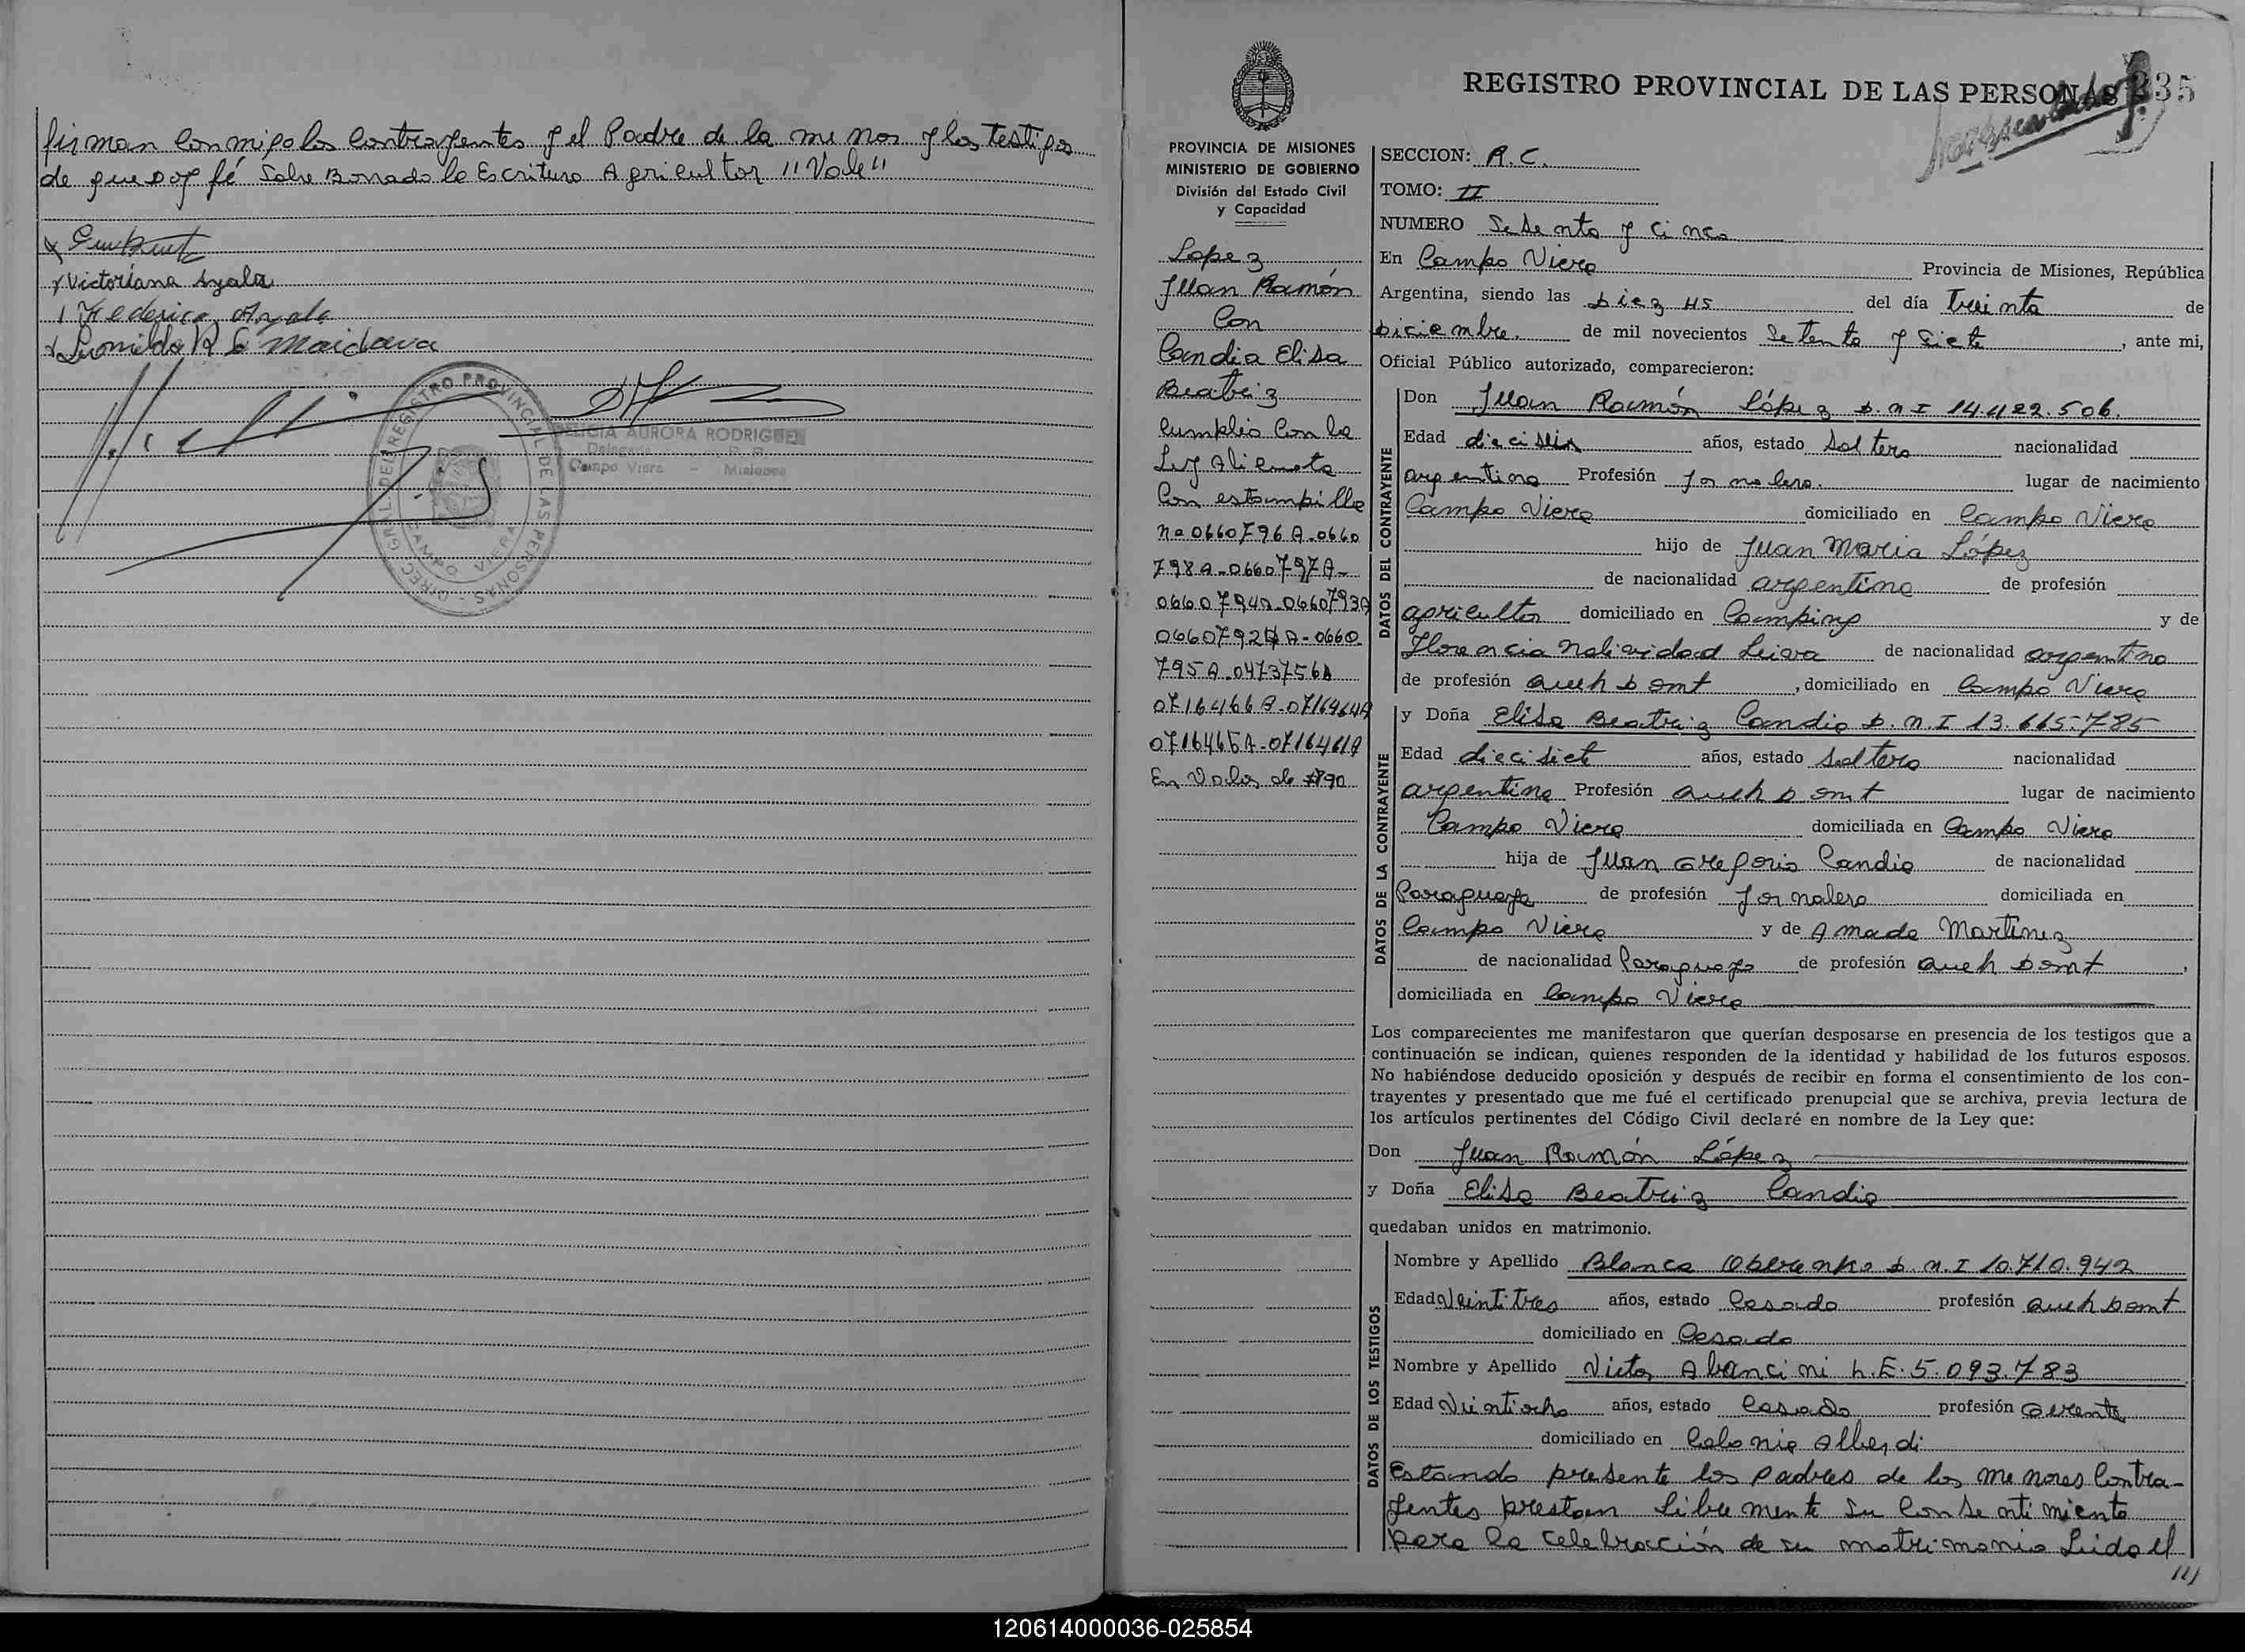 firman conmigo los contrayentes y el Padre de la menor y los testigos
de que doy fé Sobre Borrado la Escritura Agricultor "Vale"
Victoriana Ayala
Federico Ayala
Leonilda R de Maidava
DIREC. GRAL. DEL REGISTRO PROVINCIAL DE LAS PERSONAS
CAMPO VIERA
DELICIA AURORA RODRIGUEZ
Campo Viera - Misiones
REGISTRO PROVINCIAL DE LAS PERSONAS 335
PROVINCIA DE MISIONES
MINISTERIO DE GOBIERNO
División del Estado Civil
y Capacidad
Lopez
Juan Ramón
Con
Candia Elisa
Beatriz
Cumplió Con la
Ley Alimento
Con estampilla
no 0660796A-0660
798A-0660797A-
0660794A-0660793A
0660792A-0660
795A-0473756A
0716466A-0716464A
0716465A-0716461A
En Valor de $890
SECCION: R.C.
TOMO: II
NUMERO Setenta y Cinco
En Campo Viera Provincia de Misiones, República
Argentina, siendo las Diez HS del día treinta de
Diciembre de mil novecientos Setenta y Siete, ante mi,
Oficial Público autorizado, comparecieron:
DATOS DEL CONTRAYENTE
Don Juan Ramón López D.N.I 14.422.506.
Edad dieciséis años, estado Soltero nacionalidad
argentina Profesión Jornalero. lugar de nacimiento
Campo Viera domiciliado en Campo Viera
hijo de Juan Maria López
de nacionalidad argentina de profesión
agricultor domiciliado en Camping y de
Florencia Natividad Leiva de nacionalidad argentina
de profesión queh domt, domiciliado en Campo Viera
DATOS DE LA CONTRAYENTE
y Doña Elisa Beatriz Candia D.N.I 13.665.785
Edad diecisiete años, estado Soltera nacionalidad
argentina Profesión queh domt lugar de nacimiento
Campo Viera domiciliada en Campo Viera
hija de Juan Gregorio Candia de nacionalidad
Paraguaya de profesión Jornalero domiciliada en
Campo Viera y de Amada Martinez
de nacionalidad Paraguaya de profesión queh domt,
domiciliada en Campo Viera
Los comparecientes me manifestaron que querían desposarse en presencia de los testigos que a
continuación se indican, quienes responden de la identidad y habilidad de los futuros esposos.
No habiéndose deducido oposición y después de recibir en forma el consentimiento de los con-
trayentes y presentado que me fué el certificado prenupcial que se archiva, previa lectura de
los artículos pertinentes del Código Civil declaré en nombre de la Ley que:
Don Juan Ramón López
y Doña Elisa Beatriz Candia
quedaban unidos en matrimonio.
DATOS DE LOS TESTIGOS
Nombre y Apellido Blanca D.N.I 10.710.942
Edad Veintitres años, estado Casada profesión queh domt
domiciliado en Casada
Nombre y Apellido Victor Abancini L.E. 5.093.783
Edad Veintiocho años, estado Casado profesión Gerente
domiciliado en Colonia Alberdi
Estando presente los Padres de los menores Contra-
yentes prestan libremente su Consentimiento
para la celebración de su matrimonio Leida el
///
120614000036-025854